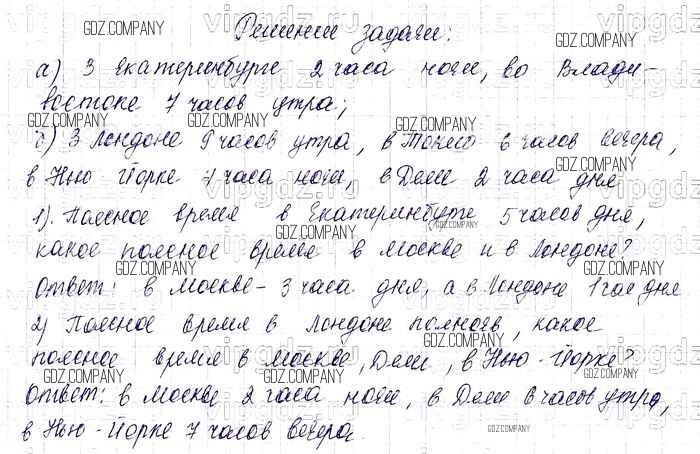 Решение задачи:
а) З Екатеринбурге 2 часа ночи, во Влади-
востоке 7 часов утра;
б) З Лондоне 9 часов утра, в Токио 6 часов вечера,
в Нью-Йорке 7 часа ночи, в Дели 2 часа дня
1). Поясное время в Екатеринбурге 5 часов дня,
какое поясное время в Москве и в Лондоне?
Ответ: в Москве - 3 часа дня, а в Лондоне 1 час дня
2) Поясное время в Лондоне полночь, какое
поясное время в Москве, Дели, в Нью-Йорке?
Ответ: в Москве 2 часа ночи, в Дели 6 часов утра,
в Нью-Йорке 7 часов вечера.
GDZ.COMPANY
vipgdz.ru